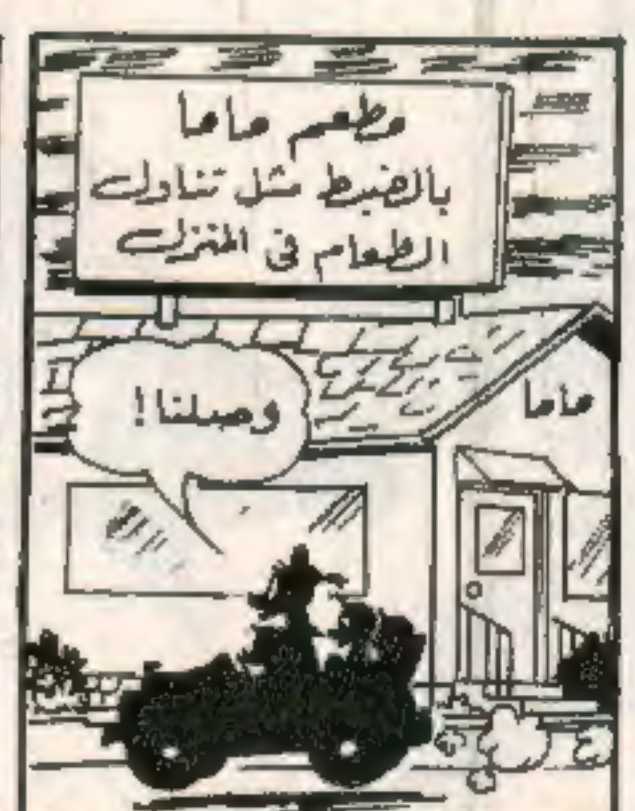 مطعم ماما
بالضبط مثل تناول
الطعام في المنزل
وصلنا!
ماما